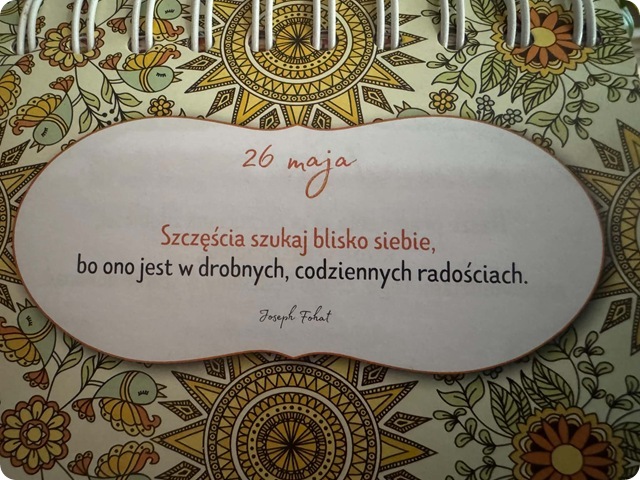 26 maja
Szczęścia szukaj blisko siebie,
bo ono jest w drobnych, codziennych radościach.
Joseph Fohat